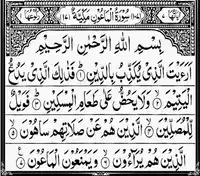 سُورَةُ الْمَاعُونَ مَكِّيَّةٌ
بِسْمِ اللّٰهِ الرَّحْمٰنِ الرَّحِيْمِ
اَرَءَيْتَ الَّذِىْ يُكَذِّبُ بِالدِّيْنِ ۱ فَذٰلِكَ الَّذِىْ يَدُعُّ
الْيَتِيْمَ ۲ وَلَا يَحُضُّ عَلٰى طَعَامِ الْمِسْكِيْنِ ۳ فَوَيْلٌ
لِّلْمُصَلِّيْنَ ۴ الَّذِيْنَ هُمْ عَنْ صَلَاتِهِمْ سَاهُوْنَ ۵
الَّذِيْنَ هُمْ يُرَآءُوْنَ ۶ وَيَمْنَعُوْنَ الْمَاعُوْنَ ۷